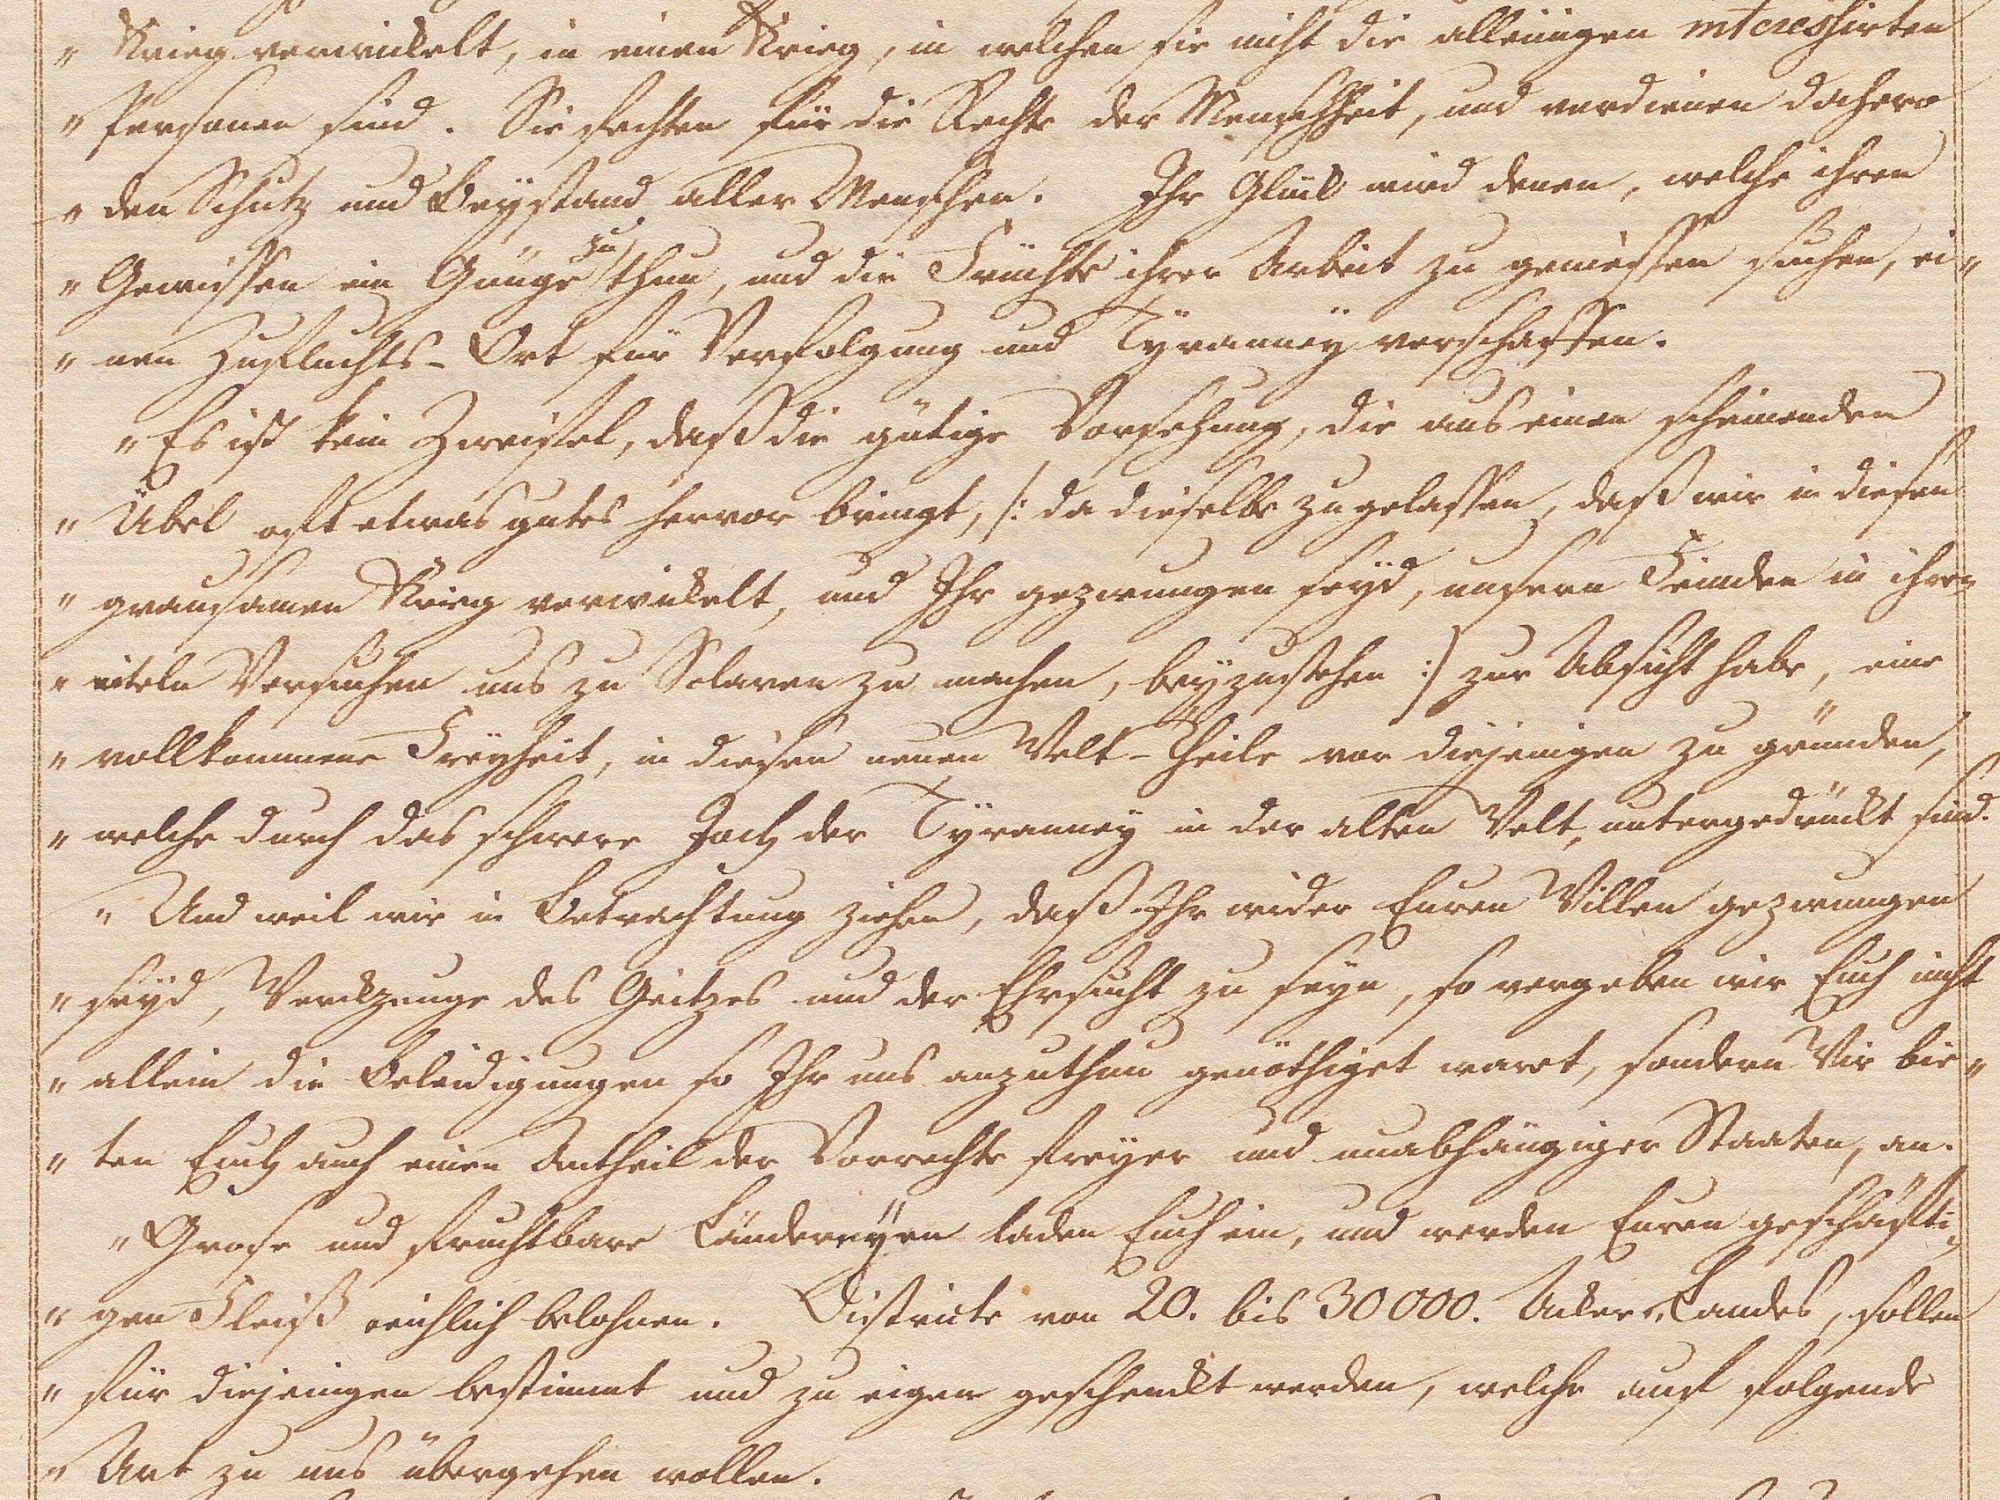 „ Krieg verwickelt, in einen Krieg, in welchen sie nicht die alleinigen interessirten
„ Personen sind. Sie fechten für die Rechte der Menschheit, und verdienen dahero
„ den Schutz und Beystand aller Menschen. Ihr Glück wird denen, welche ihren
„ Gewissen ein Gnüge zu thun, und die Früchte ihrer Arbeit zu geniessen suchen, ei„
„ nen Zufluchts-Ort für Verfolgung und Tyranney verschaffen.
„ Es ist kein Zweifel, daß die gütige Vorsehung, die aus einen scheinenden
„ Übel oft etwas gutes hervor bringt, /: da dieselbe zugelassen, daß wir in diesen
„ grausamen Krieg verwickelt, und Ihr gezwungen seyd, unsern Feinden in ihren
„ eiteln Versuchen uns zu Sclaven zu machen, beyzustehen :/ zur Absicht habe, eine
„ vollkommene Freyheit, in diesen neuen Welt-Theile vor diejenigen zu gründen,
„ welche durch das schwere Joch der Tyranney in der alten Welt, untergedrückt sind.
„ Und weil wir in Betrachtung ziehen, daß Ihr wider Euren Willen gezwungen
„ seyd, Werckzeuge des Geitzes und der Ehrsucht zu seyn, so vergeben wir Euch nicht
„ allein die Beleidigungen so Ihr uns anzuthun genöthiget waret, sondern Wir bie„
„ ten Euch auch einen Antheil der Vorrechte freyer und unabhängiger Staaten, an.
„ Grose und fruchtbare Länderëyen laden Euch ein, und werden Euren geschäfti„
„ gen Fleiß reichlich belohnen. Districte von 20. bis 30000. Acker Landes, sollen
„ für diejenigen bestimmt und zu eigen geschenckt werden, welche auf folgende
„ Art zu uns übergehen wollen.